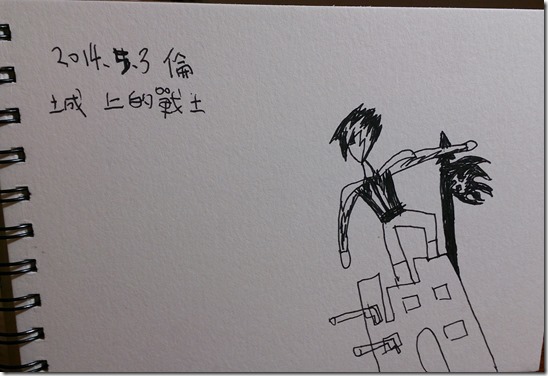 2014.5.3 倫
城 上的戰士